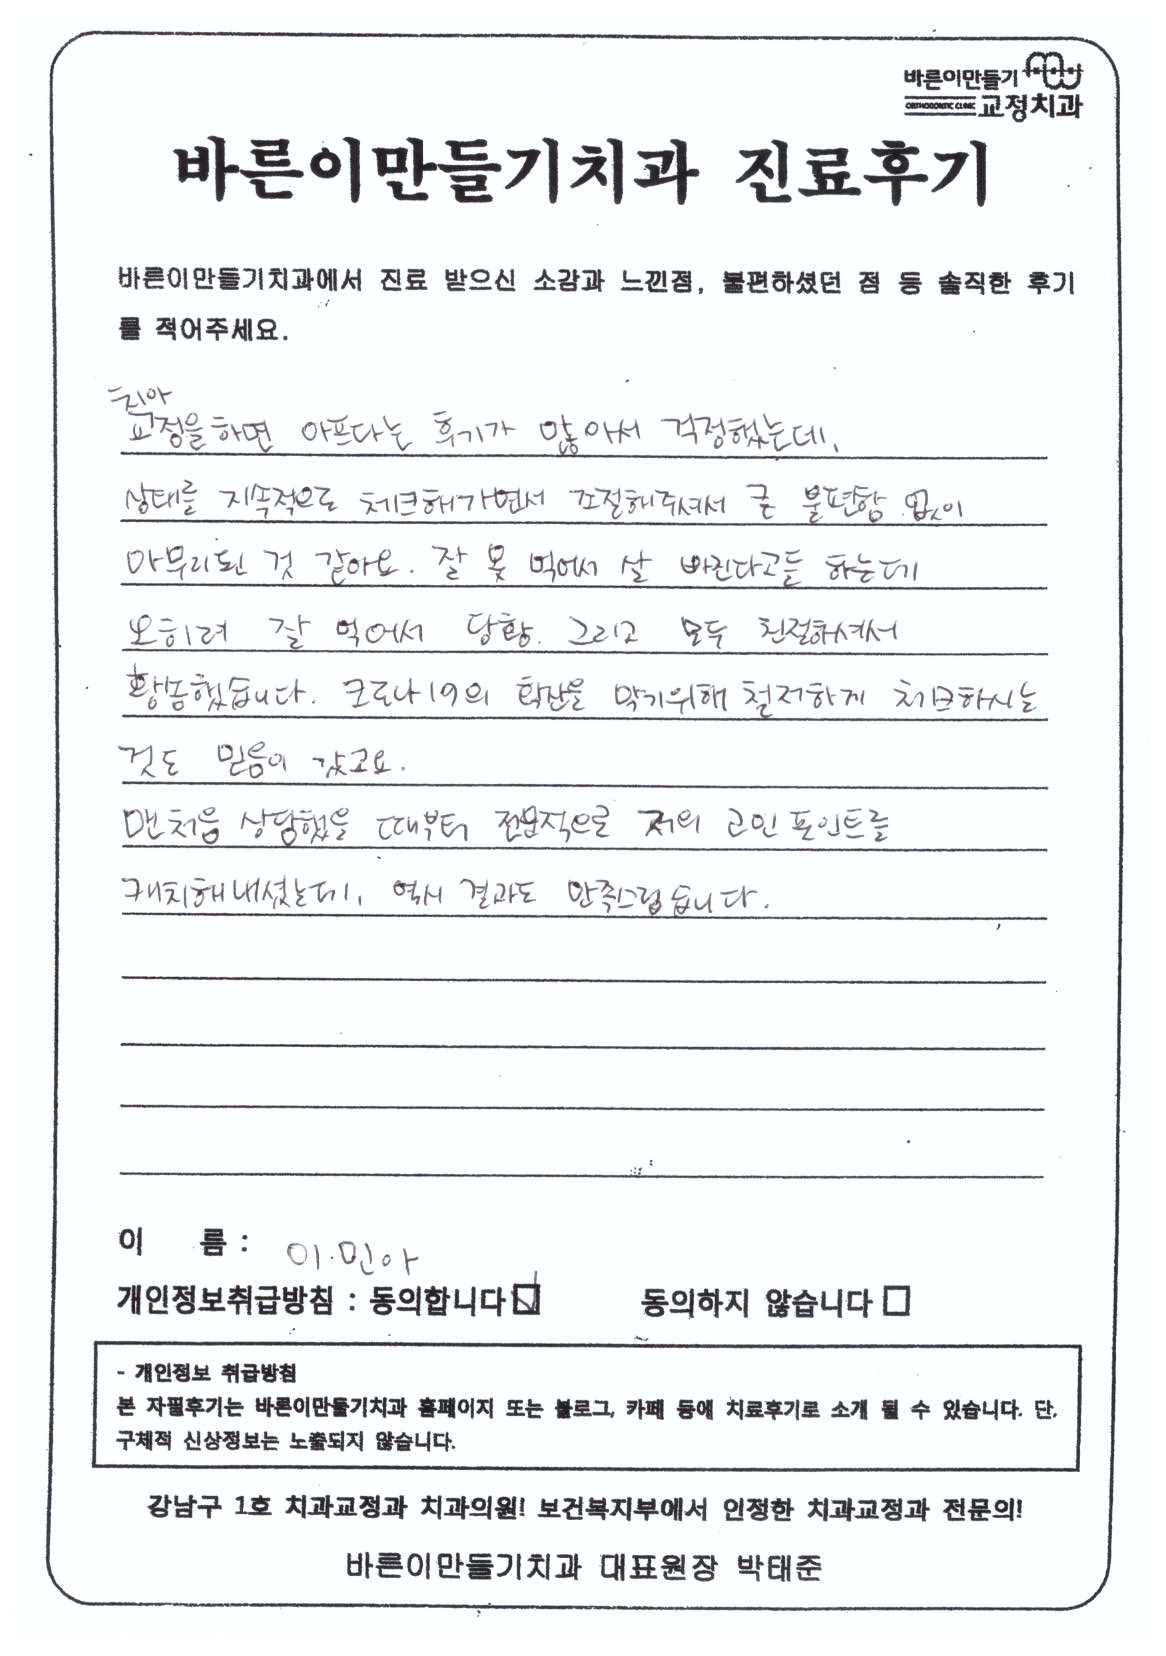 바른이만들기
ORTHODONTIC CLINIC 교정치과
바른이만들기치과 진료후기
바른이만들기치과에서 진료 받으신 소감과 느낀점, 불편하셨던 점 등 솔직한 후기
를 적어주세요.
치아
교정을하면 아프다는 후기가 많아서 걱정했는데,
상태를 지속적으로 체크해가면서 조절해주셔서 큰 불편함 없이
마무리된 것 같아요. 잘 못 먹어서 살 빠진다고들 하는데
오히려 잘 먹어서 당황. 그리고 모두 친절하셔서
황송했습니다. 코로나19의 확산을 막기위해 철저하게 체크하시는
것도 믿음이 갔고요.
맨처음 상담했을 때부터 전문적으로 저의 고민 포인트를
캐치해내셨는데, 역시 결과도 만족스럽습니다.
이 름 : 이민아
개인정보취급방침 : 동의합니다 ☑ 동의하지 않습니다 □
- 개인정보 취급방침
본 자필후기는 바른이만들기치과 홈페이지 또는 블로그, 카페 등에 치료후기로 소개 될 수 있습니다. 단,
구체적 신상정보는 노출되지 않습니다.
강남구 1호 치과교정과 치과의원! 보건복지부에서 인정한 치과교정과 전문의!
바른이만들기치과 대표원장 박태준